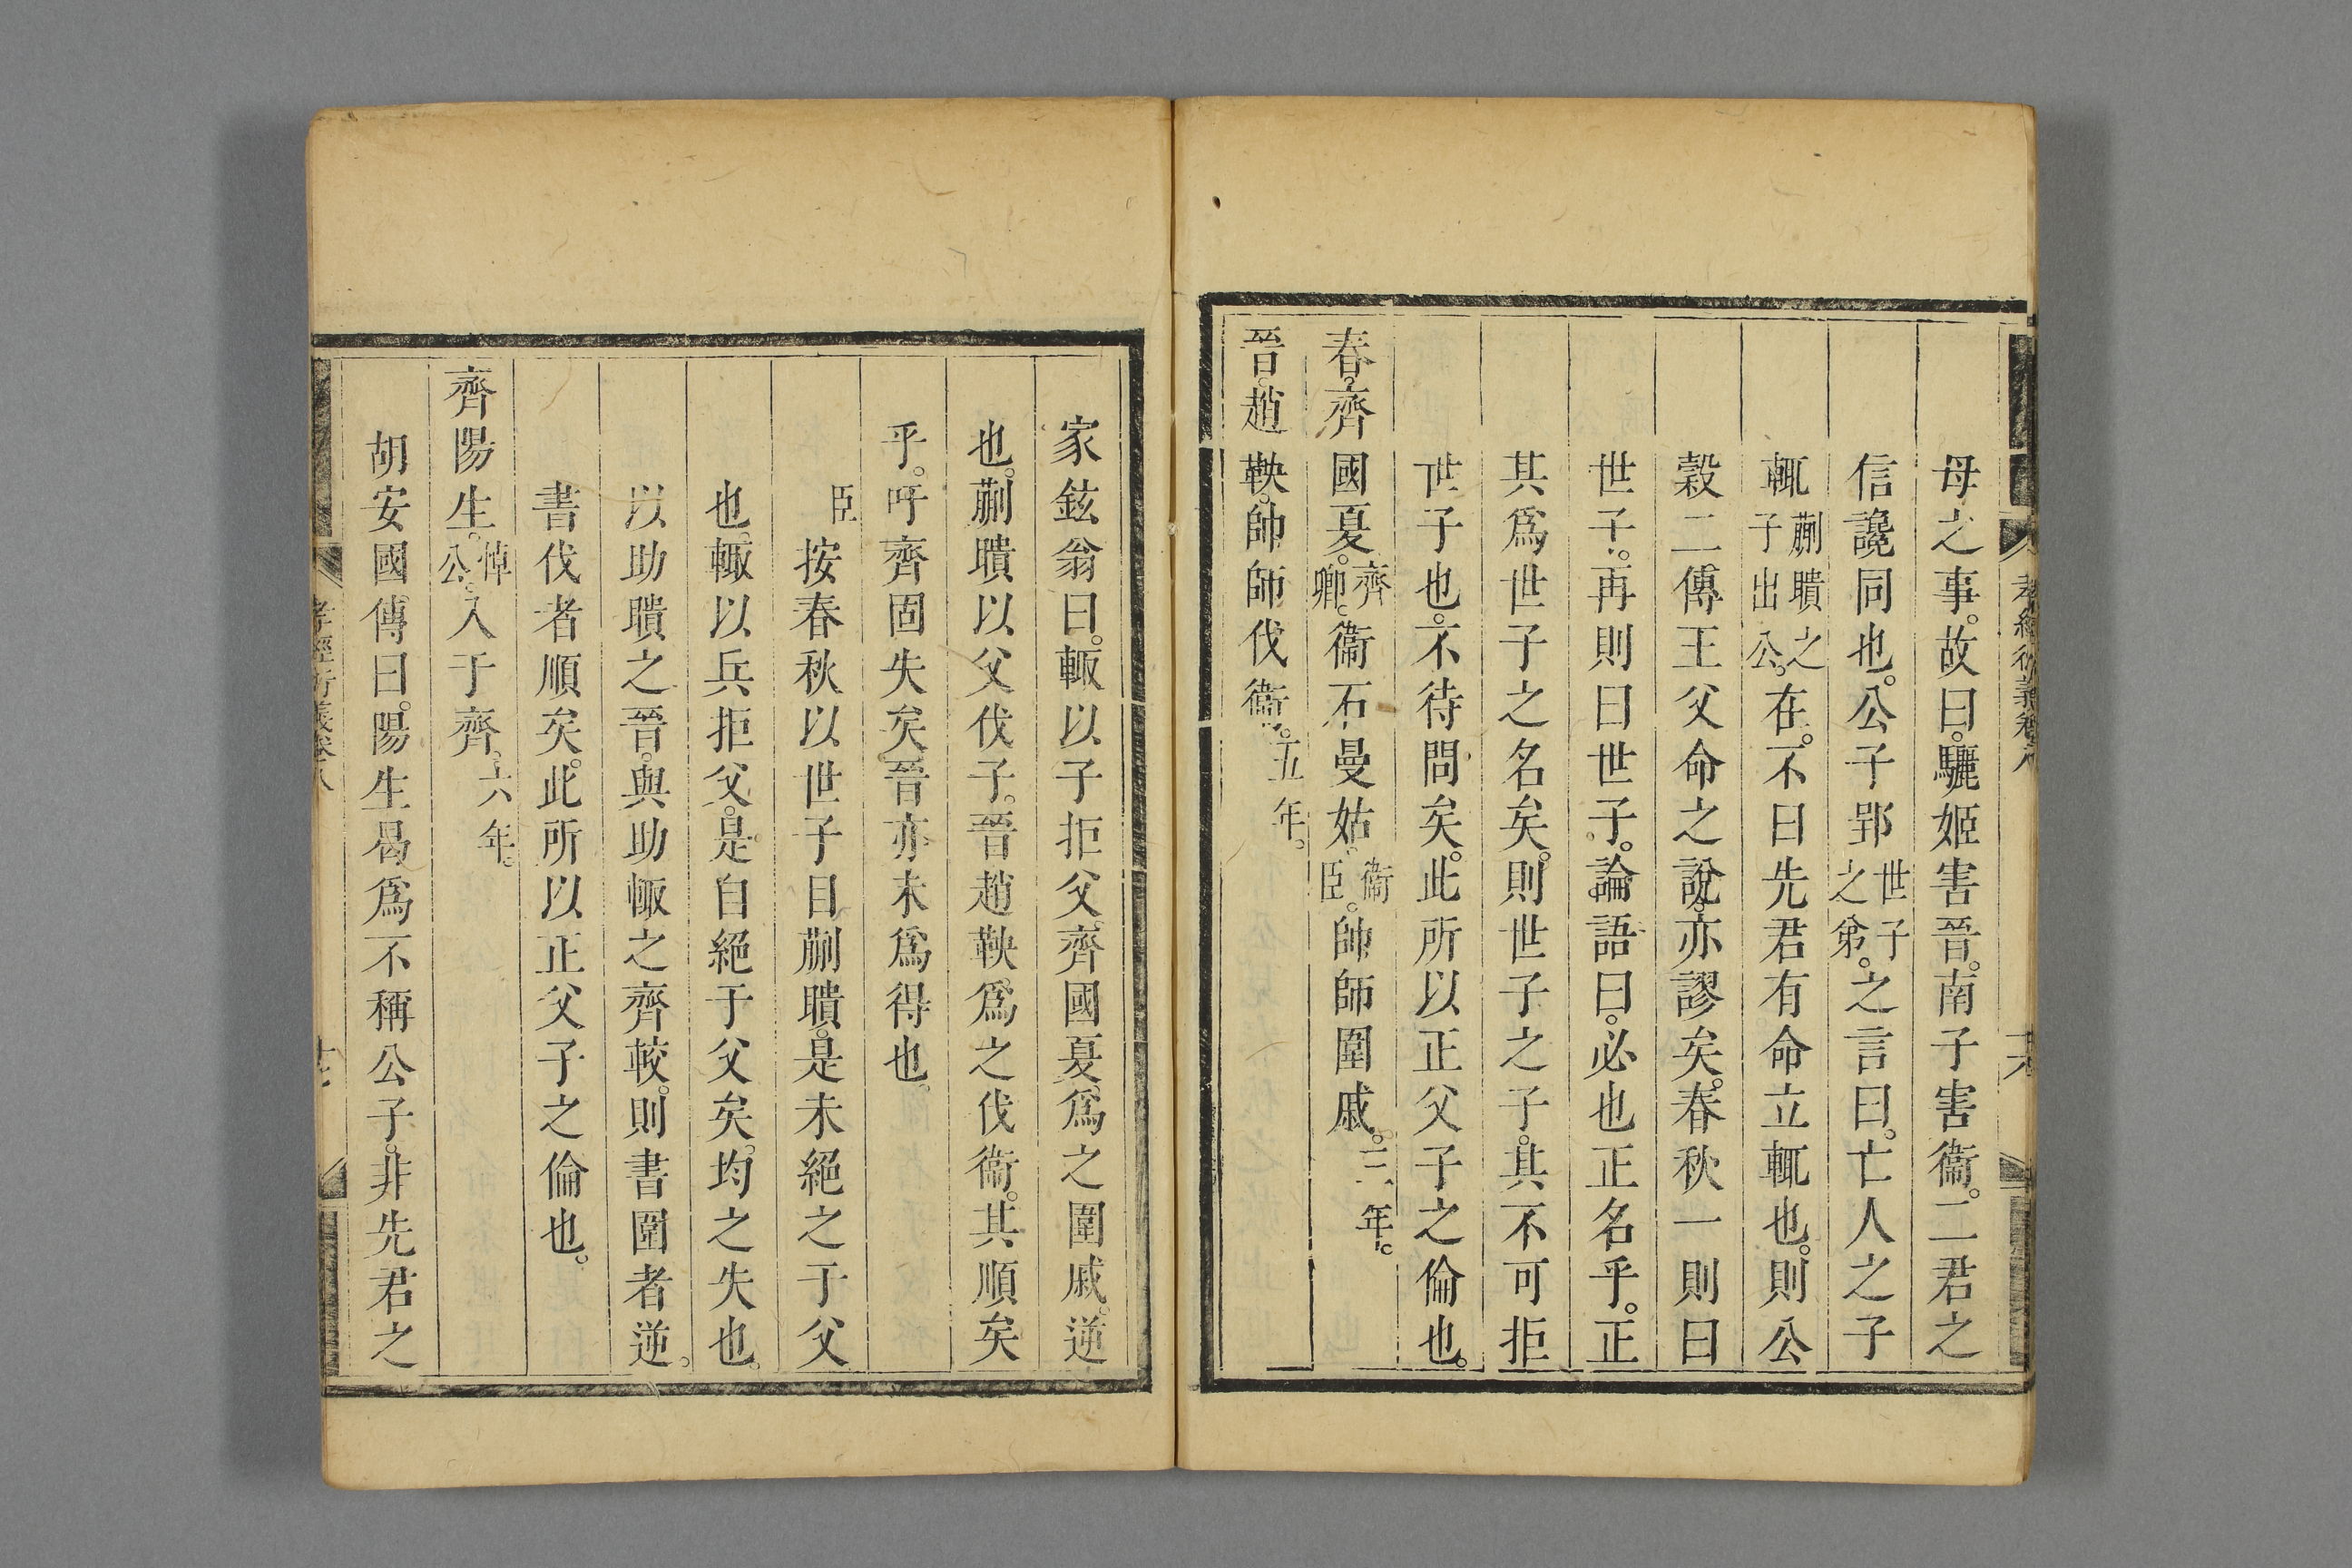 孝經衍義卷八 十六
母之事。故曰。驪姬害晉。南子害衞。二君之
信讒同也。公子郢世子之弟。之言曰。亡人之子
輒蒯聵之子出公。在。不曰先君有命立輒也。則公
穀二傳王父命之說。亦謬矣。春秋一則曰
世子。再則曰世子。論語曰。必也正名乎。正
其爲世子之名矣。則世子之子。其不可拒
世子也。不待問矣。此所以正父子之倫也。
春。齊國夏。齊卿。衞石曼姑。衞臣。帥師圍戚。三年。
晉。趙鞅。帥師伐衞。五年。
家鉉翁曰。輒以子拒父齊國夏爲之圍戚。逆
也。蒯聵以父伐子。晉趙鞅爲之伐衞。其順矣
乎。吁齊固失矣。晉亦未爲得也。
臣按春秋以世子目蒯聵。是未絕之于父
也。輒以兵拒父。是自絕于父矣。均之失也。
以助聵之晉。與助輒之齊較。則書圍者逆。
書伐者順矣。此所以正父子之倫也。
齊陽生。悼公。入于齊。六年。
胡安國傳曰。陽生曷爲不稱公子。非先君之
孝經衍義卷八 十七